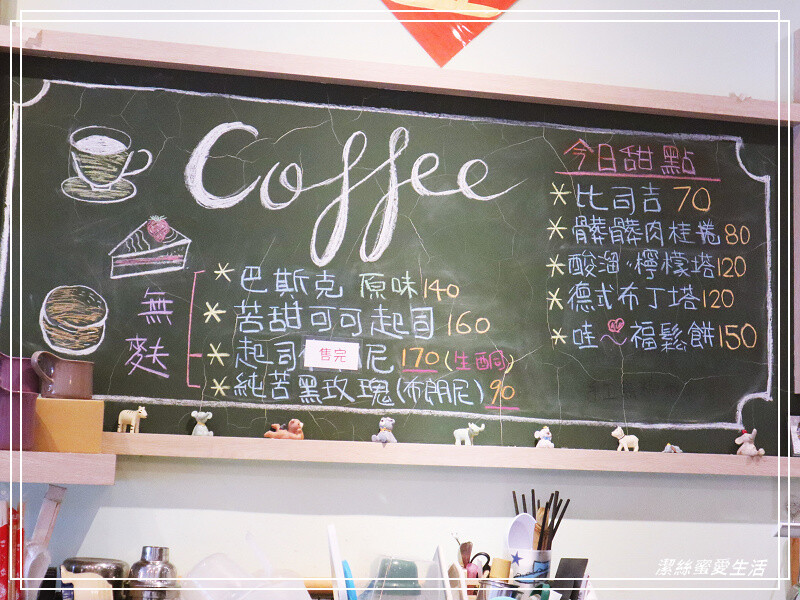 Coffee
今日甜點
*比司吉 70
*髒髒肉桂捲 80
*酸溜、檸檬塔 120
*德式布丁塔 120
*哇 福鬆餅 150
無麩
*巴斯克 原味 140
*苦甜可可起司 160
*起司 售完 尼 170 (生酮)
*純苦黑玫瑰(布朗尼) 90
潔絲蜜愛生活